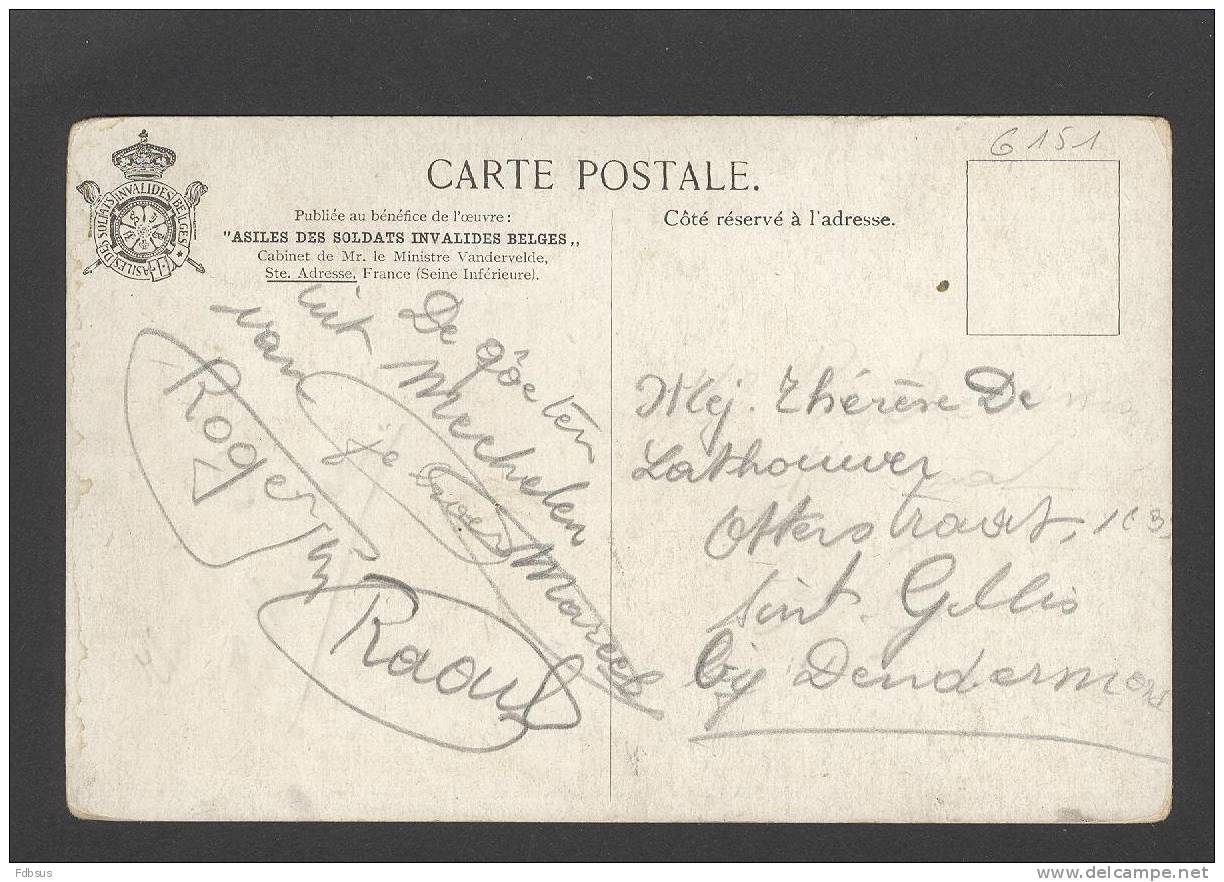 6151
CARTE POSTALE.
Publiée au bénéfice de l'œuvre :
"ASILES DES SOLDATS INVALIDES BELGES,,
Cabinet de Mr. le Ministre Vandervelde,
Ste. Adresse, France (Seine Inférieure).
ASILES DES SOLDATS INVALIDES BELGES
Côté réservé à l'adresse.
De gôeten
uit Mechelen
van je broer Marcel
Roger
Raoul
Mej. Thérèse De
Lathouwer
Otterstraat, 103
Sint. Gillis
bij Dendermond
Fdbsus
delcampe.net